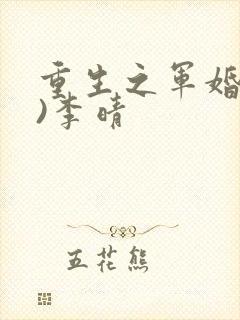 重生之军婚
)李晴
五花熊